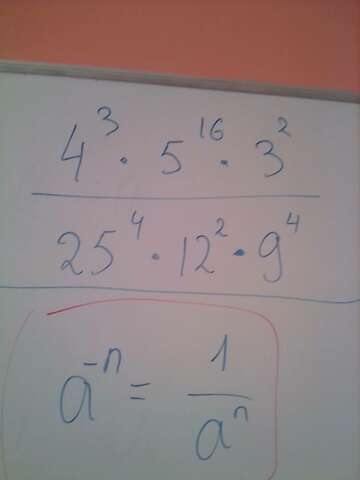 4³ · 5¹⁶ · 3²
25⁴ · 12² · 9⁴
a⁻ⁿ = 1/aⁿ